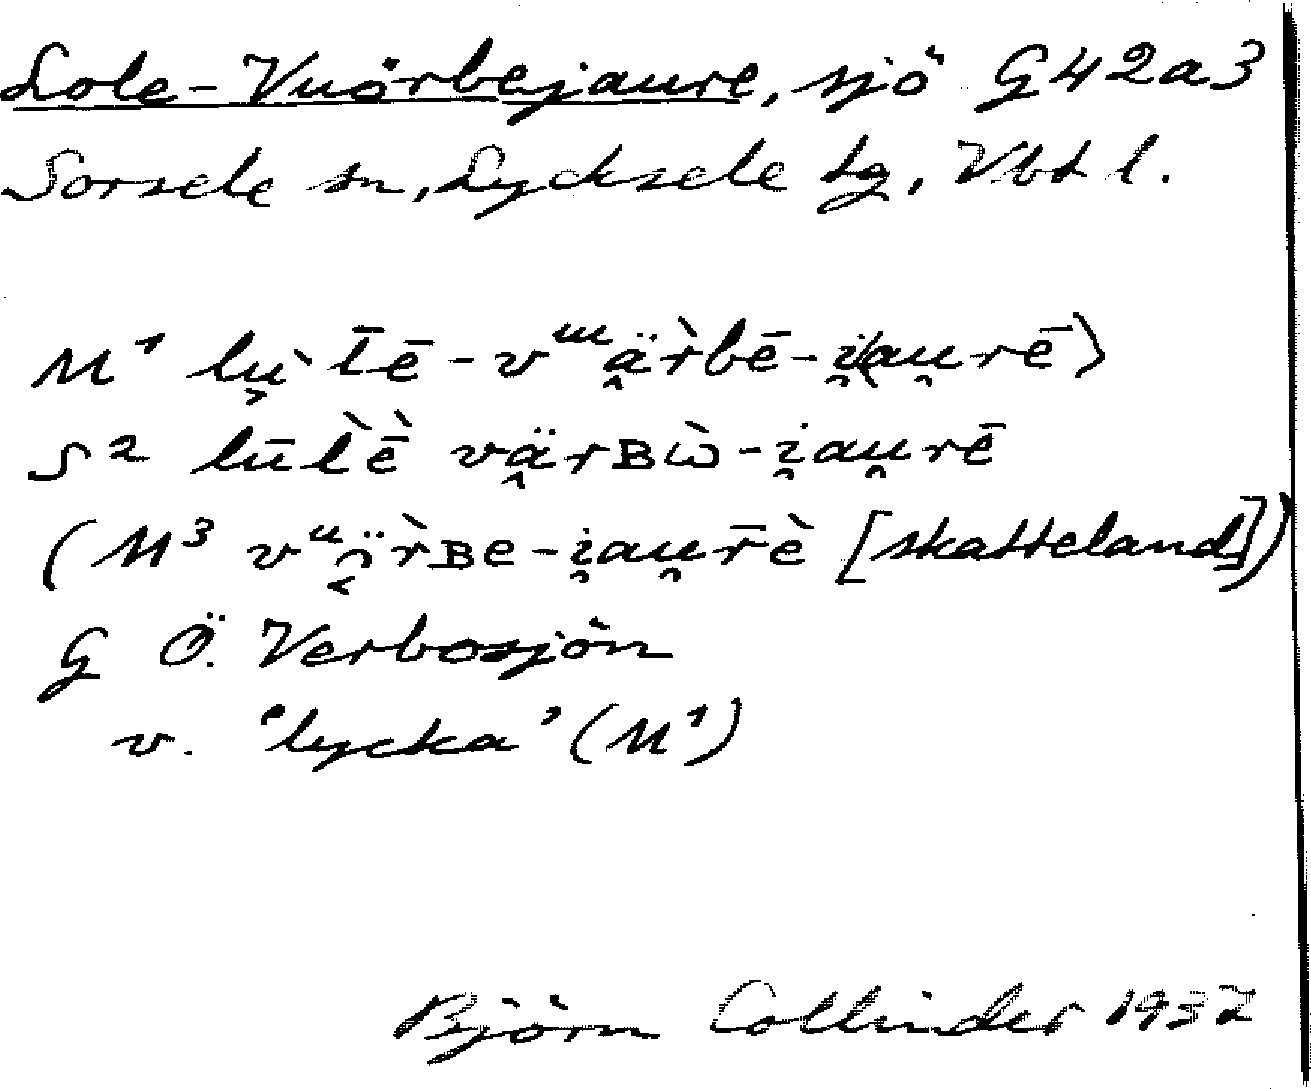 Lole-Vuörbejaure, sjö G42a3
Sorsele sn, Lycksele lg, Vbt l.
M¹ lu̖̭ l̄ē-vᵚä̭r̀bē-i̯(au̯rē)
S² lūl̀ḕ vä̭rʙὼ-i̯au̯rē
(M³ vᵘä̭r̀ʙe-i̯au̯r̄è [skatteland])
G Ö. Verbosjön
v. 'lycka' (M¹)
Björn Collinder 1937